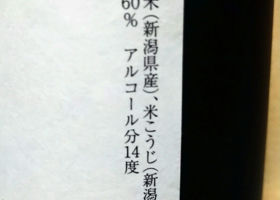 米(新潟県産)、米こうじ(新潟
60% アルコール分14度